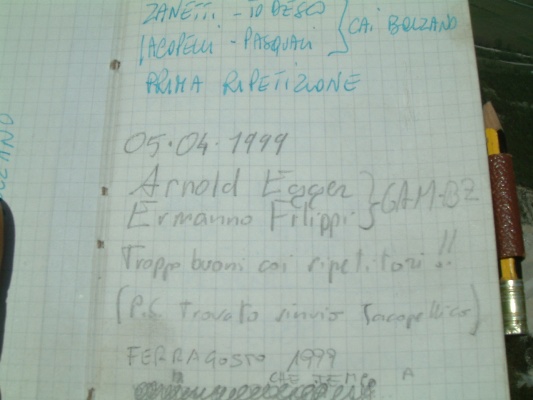 ZANETTI - TODESCO } CAI BOLZANO
IACOPELLI - PASQUALI
PRIMA RIPETIZIONE
05.04.1999
Arnold Egger } GAM-BZ
Ermanno Filippi
Troppo buoni coi ripetitori!!
(P.S. Trovato rinvio Iacopellico)
FERRAGOSTO 1999